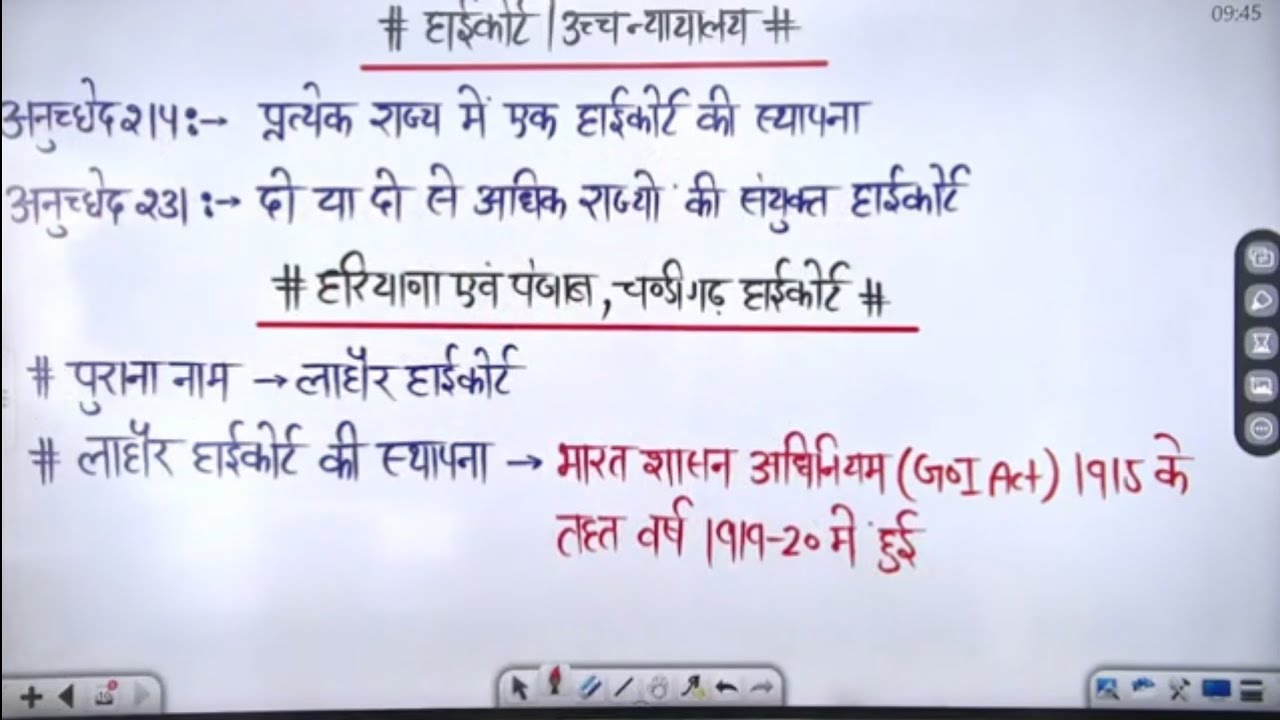 09:45
# हाईकोर्ट | उच्च न्यायालय #
अनुच्छेद 214 :→ प्रत्येक राज्य में एक हाईकोर्ट की स्थापना
अनुच्छेद 231 :→ दो या दो से अधिक राज्यो की संयुक्त हाईकोर्ट
# हरियाणा एवं पंजाब, चण्डीगढ़ हाईकोर्ट #
# पुराना नाम → लाहौर हाईकोर्ट
# लाहौर हाईकोर्ट की स्थापना → भारत शासन अधिनियम (GOI Act) 1915 के
तहत वर्ष 1919-20 मे हुई